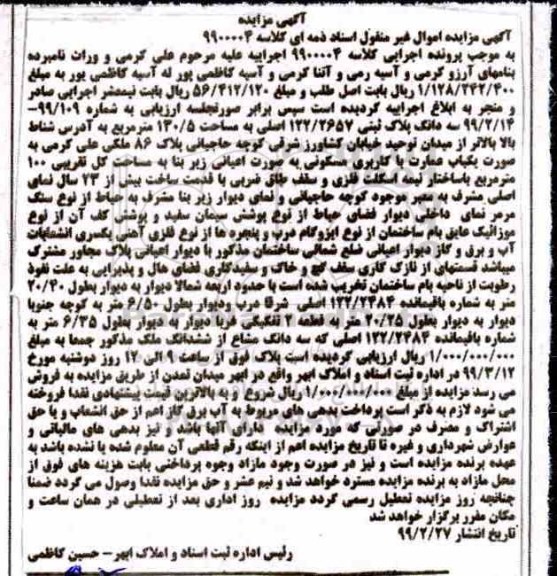 آگهی مزایده
آگهی مزایده اموال غیر منقول اسناد ذمه ای کلاسه ۹۹۰۰۰۰۴
به موجب پرونده اجرایی کلاسه ۹۹۰۰۰۰۴ اجراییه علیه مرحوم علی کرمی و وراث نامبرده
بنامهای آرزو کرمی و آسیه رمی و آتنا کرمی و آسیه کاظمی پور له آسیه کاظمی پور به مبلغ
۱/۱۲۸/۲۴۲/۴۰۰ ریال بابت اصل طلب و مبلغ ۵۶/۴۱۲/۱۲۰ ریال بابت نیمعشر اجرایی صادر
و منجر به ابلاغ اجراییه گردیده است سپس برابر صورتجلسه ارزیابی به شماره ۹۹/۱۰۹-
۹۹/۲/۱۴ سه دانگ پلاک ثبتی ۱۲۲/۲۶۵۷ اصلی به مساحت ۱۳۰/۵ مترمربع به آدرس شناط
بالا بالاتر از میدان توحید خیابان کشاورز شرقی کوچه حاجیانی پلاک ۸۶ ملکی علی کرمی به
صورت یکباب عمارت با کاربری مسکونی به صورت اعیانی زیر بنا به مساحت کل تقریبی ۱۰۰
مترمربع باساختار نیمه اسکلت فلزی و سقف طاق ضربی با قدمت ساخت بیش از ۲۳ سال نمای
اصلی مشرف به معبر موجود کوچه حاجیانی و نمای دیوار زیر بنا مشرف به حیاط از نوع سنگ
مرمر نمای داخلی دیوار فضای حیاط از نوع پوشش سیمان سفید و پوشش کف آن از نوع
موزائیک عایق بام ساختمان از نوع ایزوگام درب و پنجره ها از نوع فلزی آهنی یکسری انشعابات
آب و برق و گاز دیوار اعیانی ضلع شمالی ساختمان مذکور با دیوار اعیانی پلاک مجاور مشترک
میباشد قسمتهای از نازک کاری سقف گچ و خاک و سفیدکاری فضای هال و پذیرایی به علت نفوذ
رطوبت از ناحیه بام ساختمان تخریب شده است با حدود اربعه شمالا دیوار به دیوار بطول ۲۰/۴۰
متر به شماره باقیمانده ۱۲۲/۲۴۸۴ اصلی شرقا درب ودیوار بطول ۶/۵۰ متر به کوچه جنوبا
دیوار به دیوار بطول ۲۰/۲۵ متر به قطعه ۲ تفکیکی غربا دیوار به دیوار بطول ۶/۳۵ متر به
شماره باقیمانده ۱۲۲/۲۴۸۴ اصلی که سه دانگ مشاع از ششدانگ ملک مذکور جمعا به مبلغ
۱/۰۰۰/۰۰۰/۰۰۰ ریال ارزیابی گردیده است پلاک فوق از ساعت ۹ الی ۱۲ روز دوشنبه مورخ
۹۹/۳/۱۲ در اداره ثبت اسناد و املاک ابهر واقع در ابهر میدان تمدن از طریق مزایده به فروش
می رسد مزایده از مبلغ ۱/۰۰۰/۰۰۰/۰۰۰ ریال شروع و به بالاترین قیمت پیشنهادی نقدا فروخته
می شود لازم به ذکر است پرداخت بدهی های مربوط به آب برق گاز اعم از حق انشعاب و یا حق
اشتراک و مصرف در صورتی که مورد مزایده دارای آنها باشد و نیز بدهی های مالیاتی و
عوارض شهرداری و غیره تا تاریخ مزایده اعم از اینکه رقم قطعی آن معلوم شده یا نشده باشد به
عهده برنده مزایده است و نیز در صورت وجود مازاد وجوه پرداختی بابت هزینه های فوق از
محل مازاد به برنده مزایده مسترد خواهد شد و نیم عشر و حق مزایده نقدا وصول می گردد ضمنا
چنانچه روز مزایده تعطیل رسمی گردد مزایده روز اداری بعد از تعطیلی در همان ساعت و
مکان مقرر برگزار خواهد شد
تاریخ انتشار ۹۹/۲/۲۷
رئیس اداره ثبت اسناد و املاک ابهر - حسین کاظمی